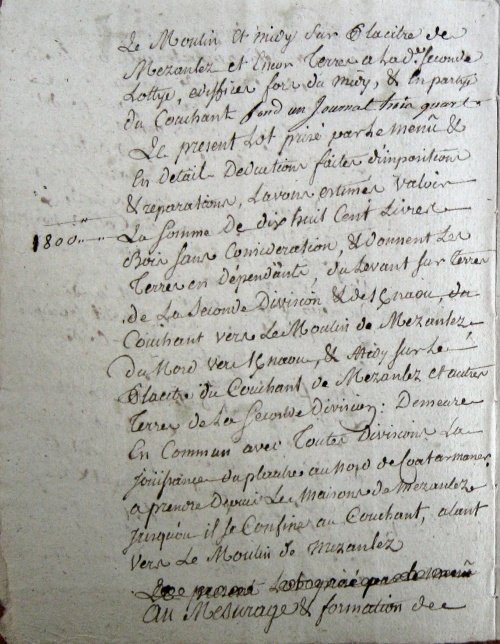 Le Moulin et midy sur Placitre de
Mezanlez et Encor Terres a Lad.e seconde
Lottye, ediffices fors du midy, & En partye
du Couchant fond un Journal trois quart
Le present Lot prisé par Le menü &
En detail Deductions faites d'inpositions
& reparations, L'avons estimés valoir
1800.. La Somme De dix huit Cent Livres
Bois sans Consideration, & donnent Les
Terres en dépendante, du Levant sur Terres
de La Seconde Division & de
Couchant vers Le Moulin de Mezanlez
du Nord vers & Midy sur Le
Placitre du Couchant de Mezanlez et autres
Terres de La Seconde Division: Demeure
En Commun avec Toutes Divisions La
jouissance du placitre au nord de Coatarmanez
a prendre Depuis Les Maisons de Mezanlez
jusqu'ou il se Confine au Couchant, alant
vers Le Moulin de Mezanlez
Le present Lot prisé par Le menü
Au Mesurage & formation de